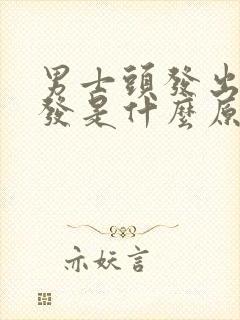 男士頭發出
發是什麼原
亦妖言